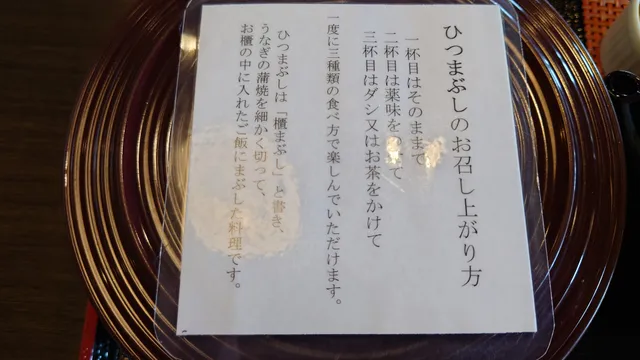 ひつまぶしのお召し上がり方
一杯目はそのままで
二杯目は薬味を て
三杯目はダシ又はお茶をかけて
一度に三種類の食べ方で楽しんでいただけます。
ひつまぶしは「櫃まぶし」と書き、
うなぎの蒲焼を細かく切って、
お櫃の中に入れたご飯にまぶした料理です。